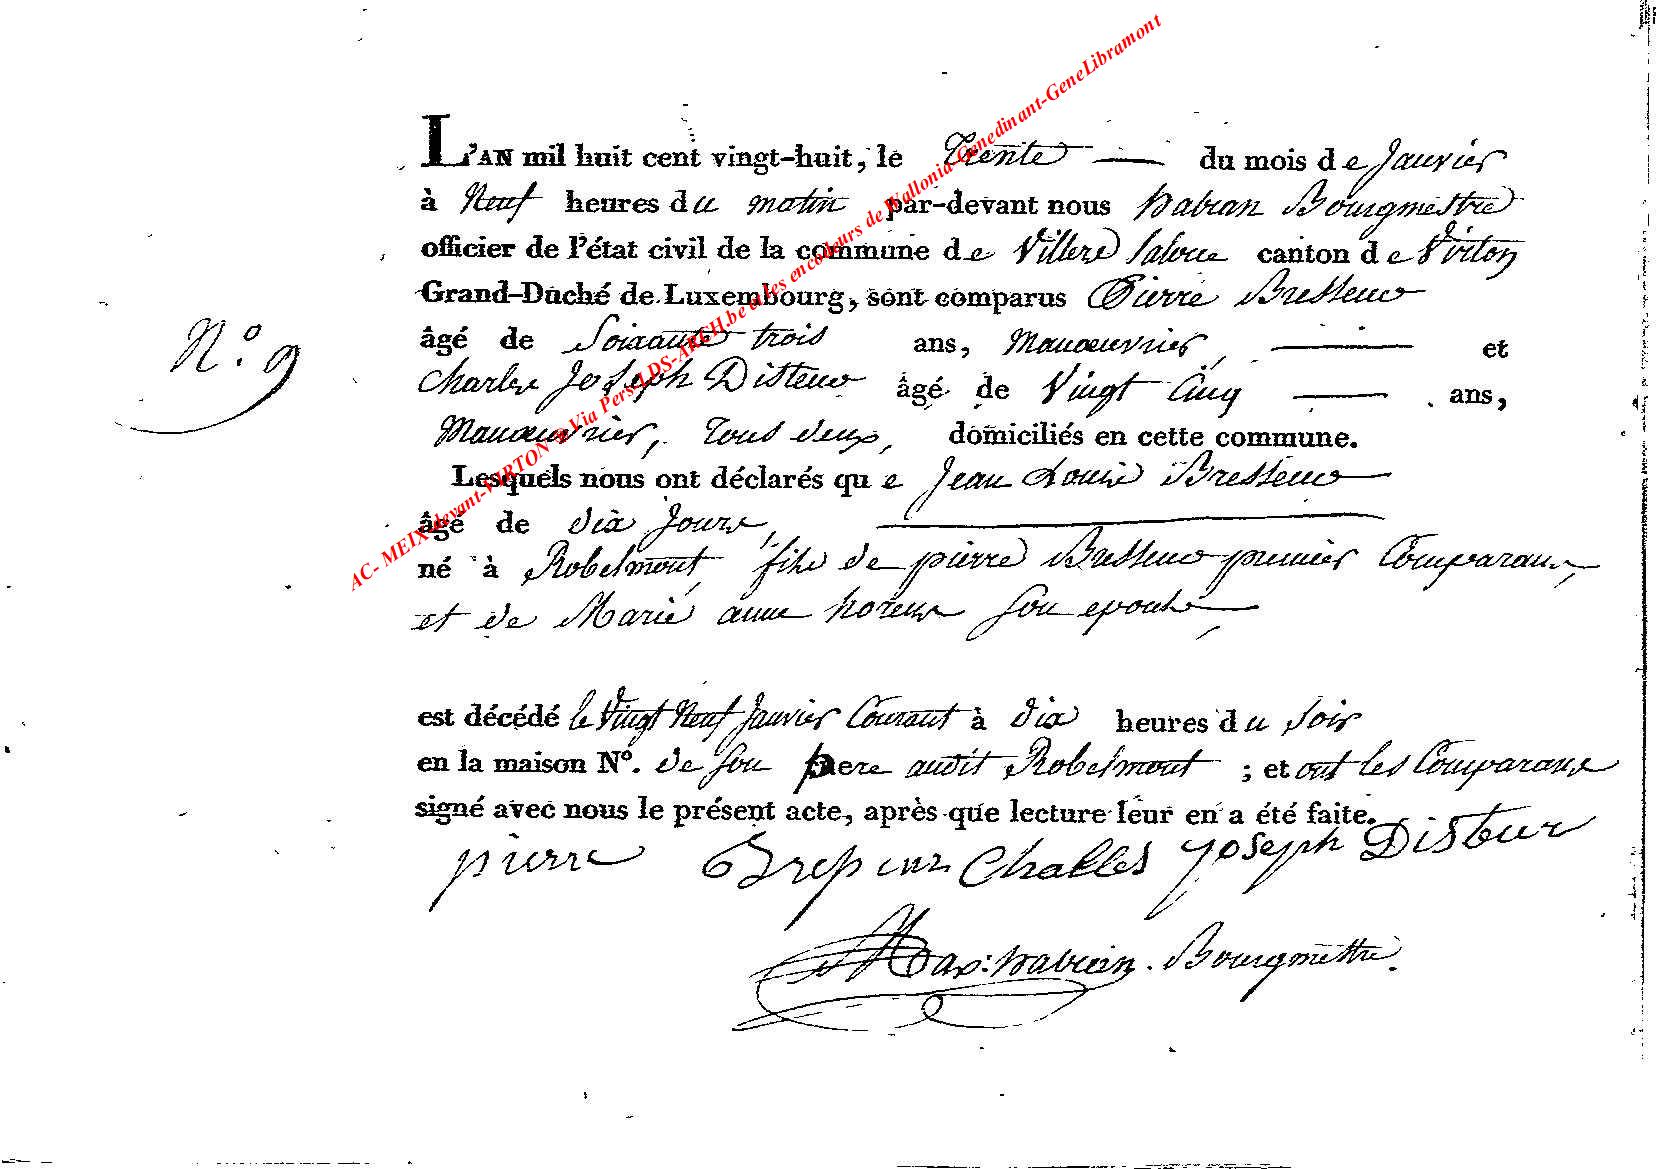 AC- MEIX-devant-VIRTON @ Via Pers. LDS-ARCH.be et les encodeurs de Wallonia-Genedinant-GeneLibramont
L'AN mil huit cent vingt-huit, le Trente du mois de Janvier
à Neuf heures du matin par-devant nous habran Bourgmestre
officier de l'état civil de la commune de Villers Laloue canton de Virton
Grand-Duché de Luxembourg, sont comparus Pierre Bresseur
N.º 9
âgé de Soixante trois ans, Manœuvrier, et
Charles Joseph Disteur âgé de Vingt Cinq ans,
Manœuvrier, Tous deux, domiciliés en cette commune.
Lesquels nous ont déclarés que Jean Louis Bresseur
âgé de dix Jours,
né à Robelmont, fils de pierre Bresseur premier Comparant,
et de Marie anne son epouse,
est décédé le Vingt Neuf Janvier Courant à dix heures du soir
en la maison Nº. de son pere audit Robelmont ; et ont les Comparans
signé avec nous le présent acte, après que lecture leur en a été faite.
pierre Charles Joseph Disteur
Max: habran. Bourgmestre.